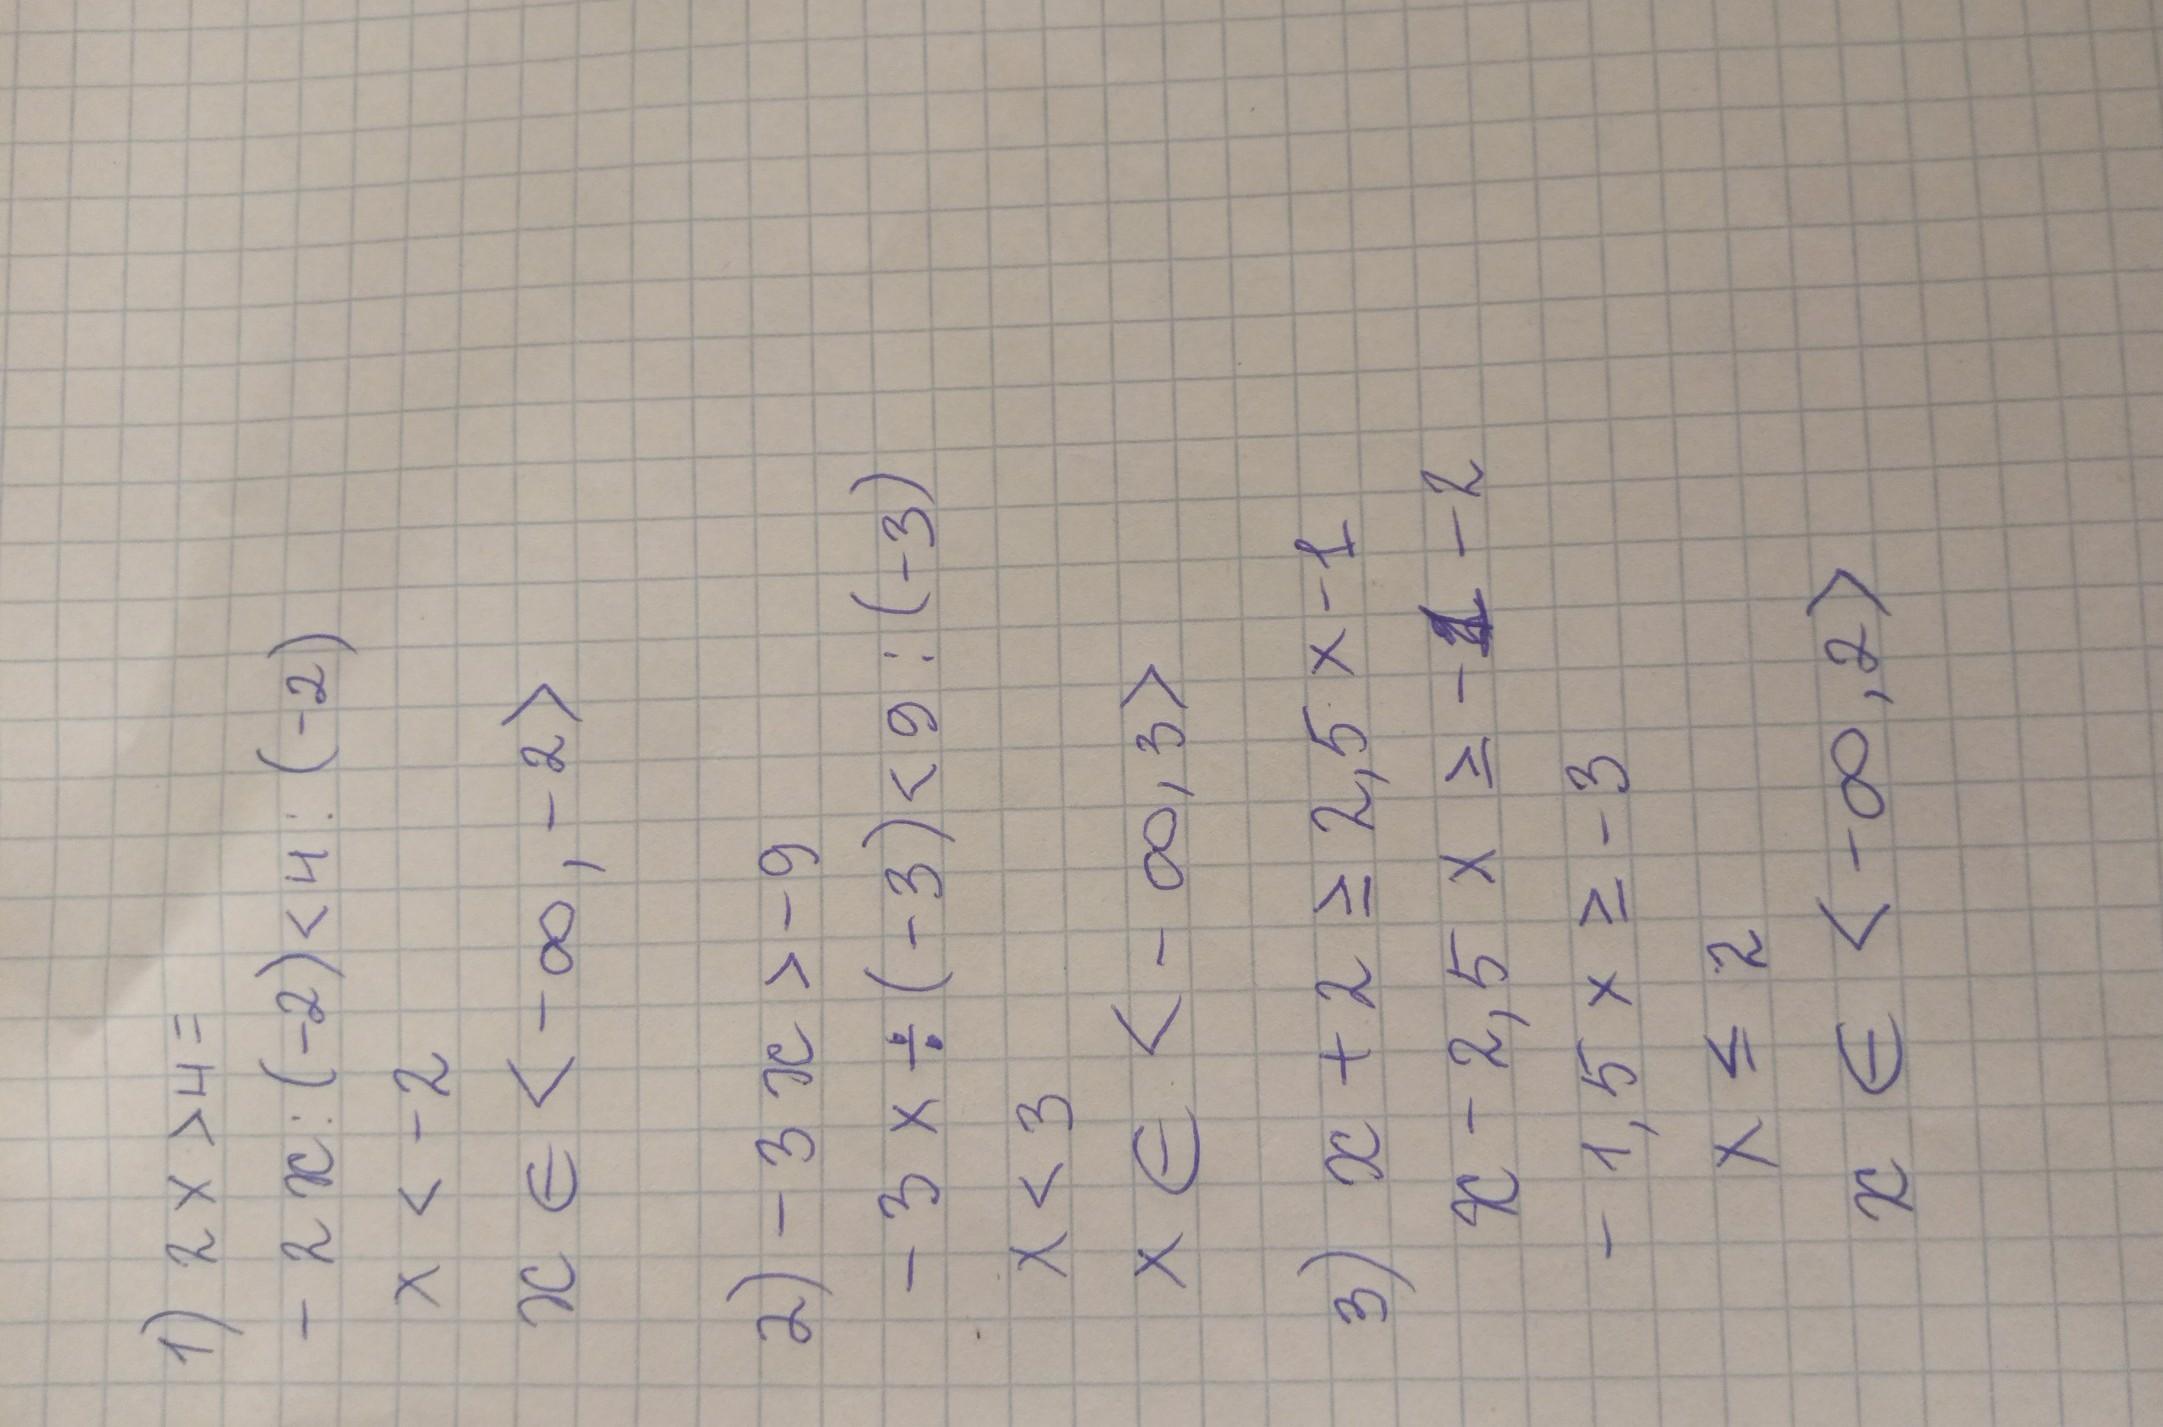 1) 2x>4=
-2x:(-2)<4:(-2)
x<-2
x∈<-∞,-2>
2) -3x>-9
-3x÷(-3)<9:(-3)
x<3
x∈<-∞,3>
3) x+2≥2,5x-1
x-2,5x≥-1-2
-1,5x≥-3
x≤2
x∈<-∞,2>